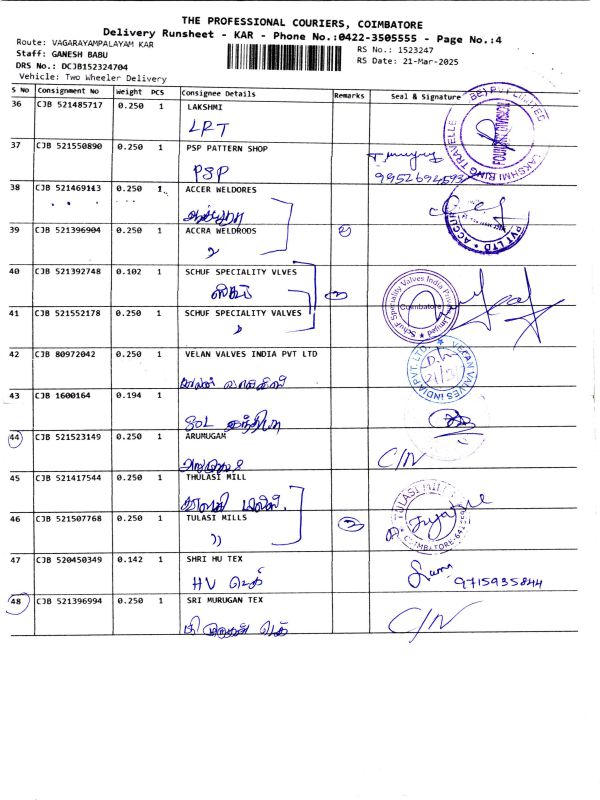 THE PROFESSIONAL COURIERS, COIMBATORE
Delivery Runsheet - KAR - Phone No.:0422-3505555 - Page No.:4
Route: VAGARAYAMPALAYAM KAR
Staff: GANESH BABU
DRS No.: DCJB152324704
Vehicle: Two Wheeler Delivery
RS No.: 1523247
RS Date: 21-Mar-2025
S No Consignment No Weight PCS Consignee Details Remarks Seal & Signature
36 CJB 521485717 0.250 1 LAKSHMI
LRT
37 CJB 521550890 0.250 1 PSP PATTERN SHOP
PSP
9952694593
38 CJB 521469143 0.250 1 ACCER WELDORES
39 CJB 521396904 0.250 1 ACCRA WELDRODS
2
PVT LTD
40 CJB 521392748 0.102 1 SCHUF SPECIALITY VLVES
2
Schuf Speciality Valves India Private Limited
Coimbatore
41 CJB 521552178 0.250 1 SCHUF SPECIALITY VALVES
42 CJB 80972042 0.250 1 VELAN VALVES INDIA PVT LTD
VELAN VALVES INDIA PVT. LTD.
43 CJB 1600164 0.194 1
44 CJB 521523149 0.250 1 ARUMUGAM
C/N
45 CJB 521417544 0.250 1 THULASI MILL
46 CJB 521507768 0.250 1 TULASI MILLS
))
2
TULASI MILLS
47 CJB 520450349 0.142 1 SHRI HU TEX
HV டெக்
9715935844
48 CJB 521396994 0.250 1 SRI MURUGAN TEX
C/N